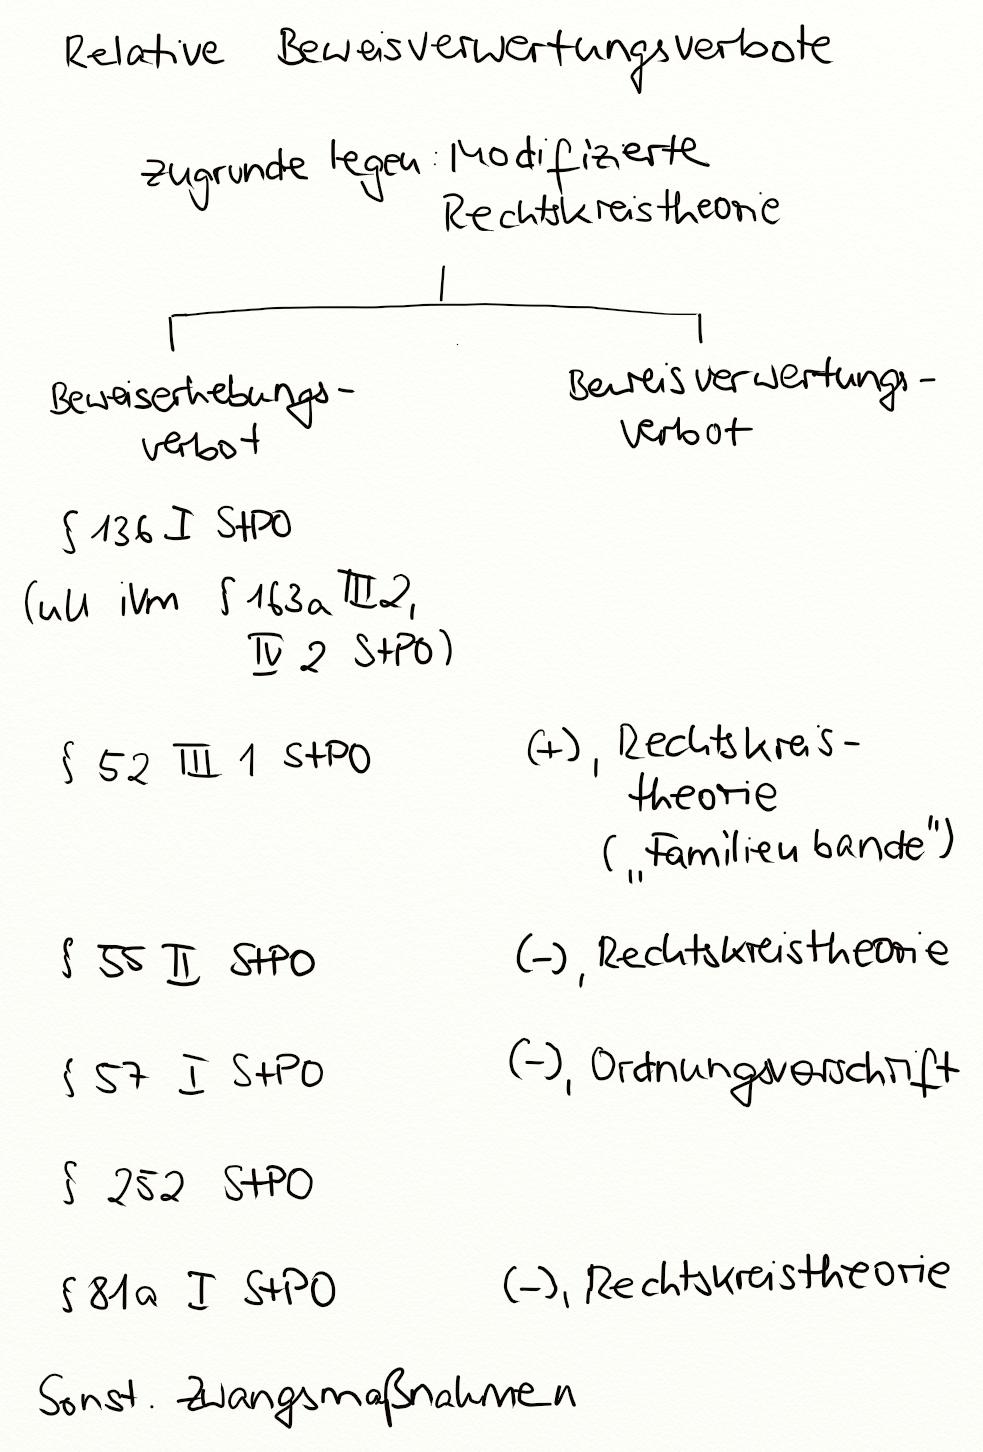 Relative Beweisverwertungsverbote
zugrunde legen: Modifizierte
Rechtskreistheorie
Beweiserhebungs-
verbot
Beweisverwertungs-
verbot
§ 136 I StPO
(uU iVm § 163a III 2,
IV 2 StPO)
§ 52 III 1 StPO
(+), Rechtskreis-
theorie
(„Familienbande")
§ 55 II StPO
(-), Rechtskreistheorie
§ 57 I StPO
(-), Ordnungsvorschrift
§ 252 StPO
§ 81a I StPO
(-), Rechtskreistheorie
Sonst. Zwangsmaßnahmen